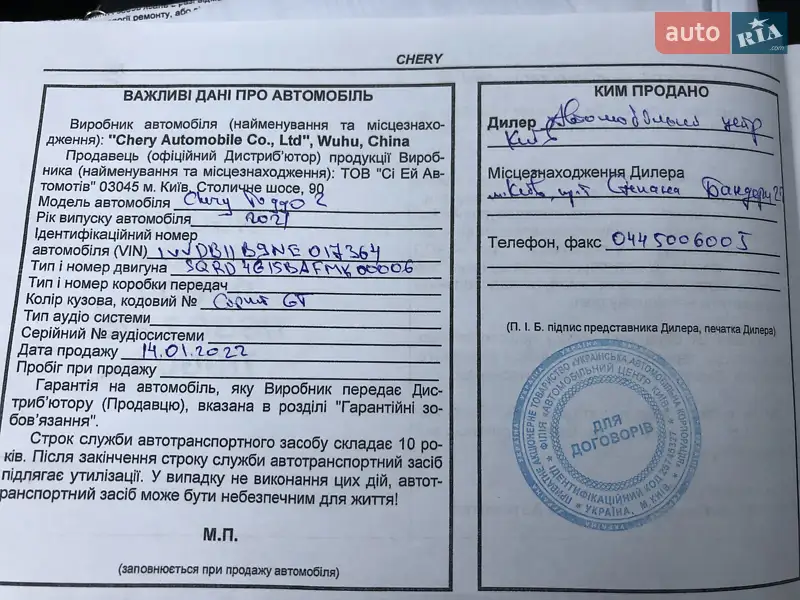 ії ремонту, або
auto RIA .com
CHERY
ВАЖЛИВІ ДАНІ ПРО АВТОМОБІЛЬ
Виробник автомобіля (найменування та місцезнахо-
дження): "Chery Automobile Co., Ltd", Wuhu, China
Продавець (офіційний Дистриб'ютор) продукції Вироб-
ника (найменування та місцезнаходження): ТОВ "Сі Ей Ав-
томотів" 03045 м. Київ, Столичне шосе, 90
Модель автомобіля Chery Тіггo 2
Рік випуску автомобіля 2021
Ідентифікаційний номер
автомобіля (VIN) LVVDB11B9NE017364
Тип і номер двигуна SQRD4G15BAFMK00006
Тип і номер коробки передач
Колір кузова, кодовий № Сірий GT
Тип аудіо системи
Серійний № аудіосистеми
Дата продажу 14.01.2022
Пробіг при продажу
Гарантія на автомобіль, яку Виробник передає Дис-
триб'ютору (Продавцю), вказана в розділі "Гарантійні зо-
бов'язання".
Строк служби автотранспортного засобу складає 10 ро-
ків. Після закінчення строку служби автотранспортний засіб
підлягає утилізації. У випадку не виконання цих дій, автот-
ранспортний засіб може бути небезпечним для життя!
М.П.
(заповнюється при продажу автомобіля)
КИМ ПРОДАНО
Дилер Автомобільний центр
Київ
Місцезнаходження Дилера
м. Київ, пр-т Степана Бандери
Телефон, факс 0445006005
(П. І. Б. підпис представника Дилера, печатка Дилера)
ПРИВАТНЕ АКЦІОНЕРНЕ ТОВАРИСТВО «УКРАЇНСЬКА АВТОМОБІЛЬНА КОРПОРАЦІЯ»
ФІЛІЯ «АВТОМОБІЛЬНИЙ ЦЕНТР КИЇВ»
ДЛЯ
ДОГОВОРІВ
ІДЕНТИФІКАЦІЙНИЙ КОД
УКРАЇНА, М. КИЇВ